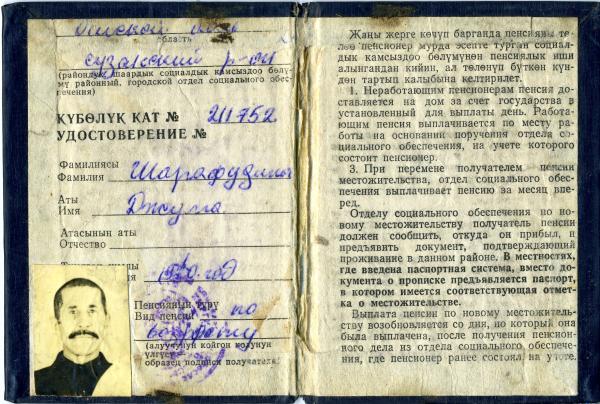 Ошской
область
сузакский р-он
(райондук, шаардык социалдык камсыздоо бөлү-
мү районный, городской отдел социального обес-
печения)
КҮБӨЛҮК КАТ №
УДОСТОВЕРЕНИЕ № 211752
Фамилиясы
Фамилия Шарафудинов
Аты
Имя Джула
Атасынын аты
Отчество
год
Пенсиянын түрү
Вид пенсии по
возрасту
(алуучунун койгон колунун
үлгүсү
образец подписи получателя)
Жаңы жерге көчүп барганда пенсияны тө-
лөө пенсионер мурда эсепте турган социал-
дык камсыздоо бөлүмүнөн пенсиялык иши
алынгандан кийин, ал төлөнүп бүткөн күн-
дөн тартып калыбына келтирилет.
1. Неработающим пенсионерам пенсия до-
ставляется на дом за счет государства в
установленный для выплаты день. Работаю-
щим пенсия выплачивается по месту ра-
боты на основании поручения отдела со-
циального обеспечения, на учете которого
состоит пенсионер.
3. При перемене получателем пенсии
местожительства, отдел социального обес-
печения выплачивает пенсию за месяц впе-
ред.
Отделу социального обеспечения по но-
вому местожительству получатель пенсии
должен сообщить, откуда он прибыл, и
предъявить документ, подтверждающий
проживание в данном районе. В местностях,
где введена паспортная система, вместо до-
кумента о прописке предъявляется паспорт,
в котором имеется соответствующая отмет-
ка о местожительстве.
Выплата пенсии по новому местожитель-
ству возобновляется со дня, по который она
была выплачена, после получения пенсион-
ного дела из отдела социального обеспече-
ния, где пенсионер ранее состоял на учете.